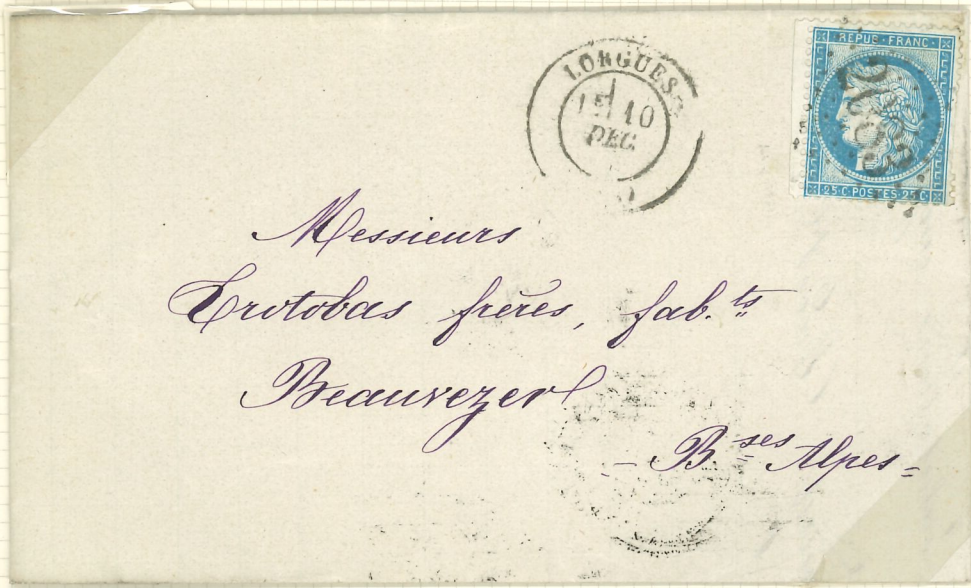 LORGUES
1E 10
DEC.
REPUB·FRANC·
25·C·POSTES·25·C·
Messieurs
Trotobas frères, fab.ts
Beauvezer
B.ses Alpes